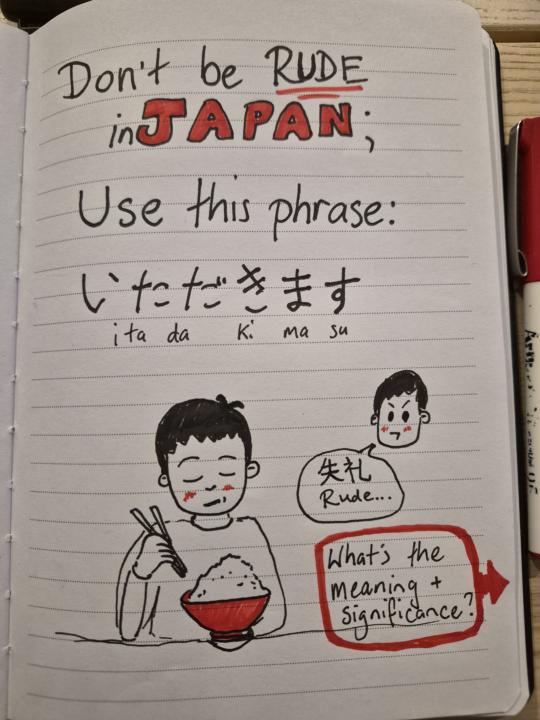 Don't be RUDE
in JAPAN;
Use this phrase:
いただきます
i ta da ki ma su
失礼
Rude...
What's the
meaning +
significance?